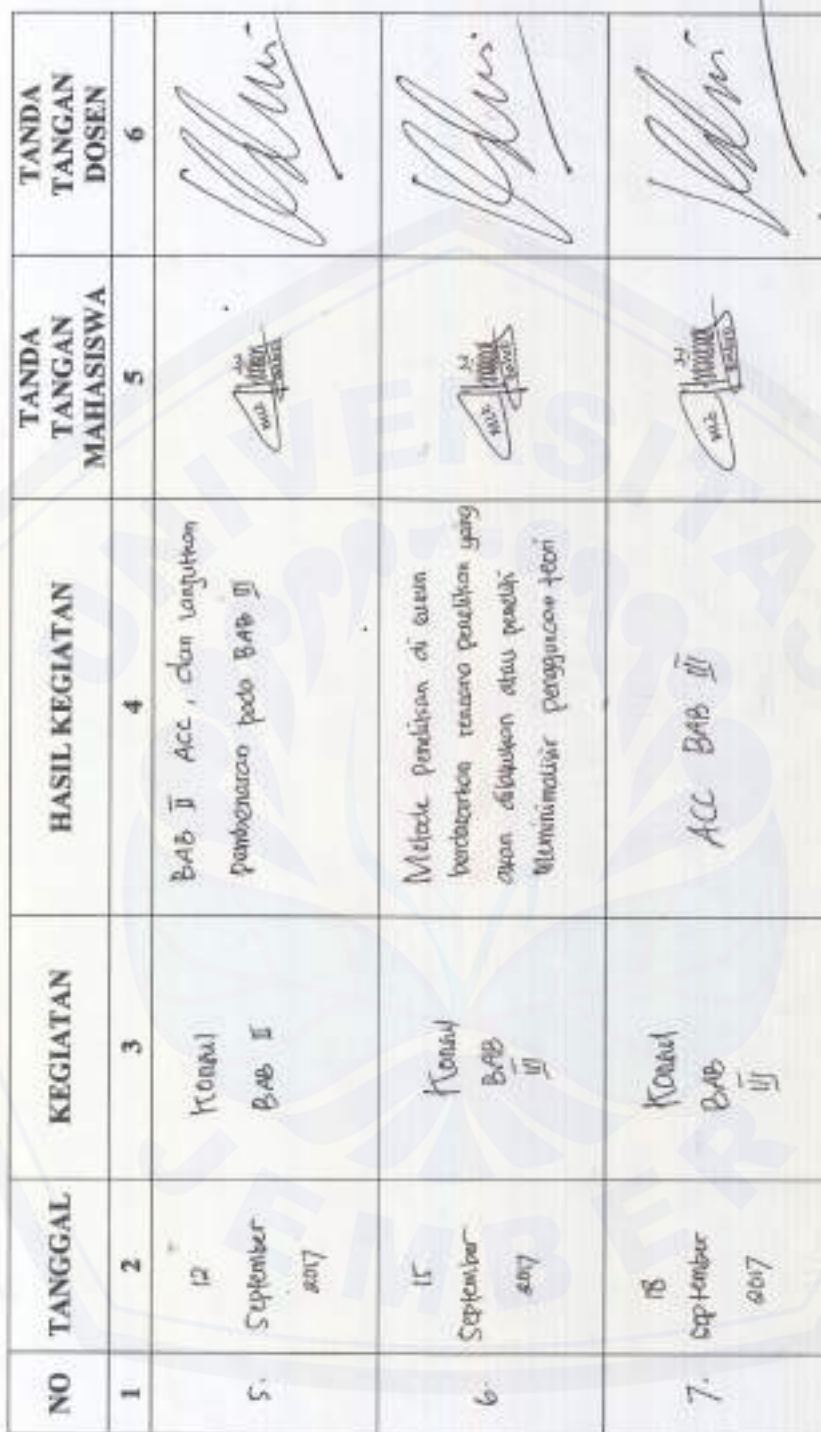 NO
TANGGAL
KEGIATAN
HASIL KEGIATAN
TANDA
TANGAN
MAHASISWA
TANDA
TANGAN
DOSEN
1
2
3
4
5
6
5.
12
September
2017
Konsul
BAB II
BAB II ACC, dan lanjutkan
pembenaran pada BAB III
6.
15
September
2017
Konsul
BAB
III
Metode penelitian di susun
berdasarkan rencana penelitian yang
akan dilakukan atau peneliti
Meminimalisir penggunaan teori
7.
18
September
2017
Konsul
BAB
III
ACC BAB III
UNIVERSITAS
JEMBER